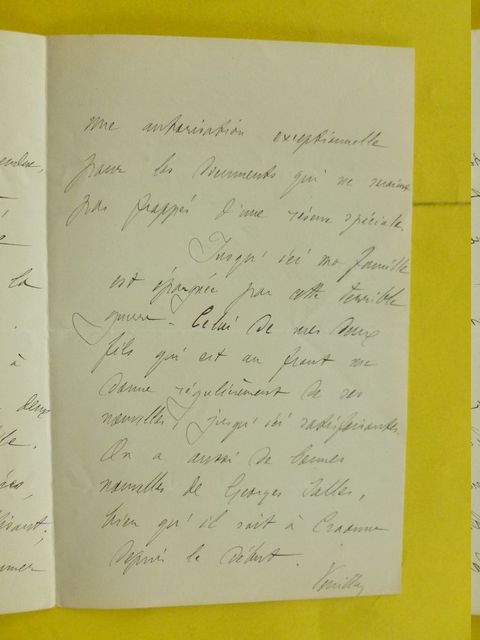 une autorisation exceptionnelle
pour les documents qui ne seraient
pas frappés d'une réserve spéciale.
Jusqu'ici ma famille
est épargnée par cette terrible
guerre. Celui de mes deux
fils qui est au front me
donne régulièrement de ses
nouvelles, jusqu'ici satisfaisantes.
On a aussi de bonnes
nouvelles de Georges Salles,
bien qu'il soit à Craonne
depuis le début.
la
à
deux